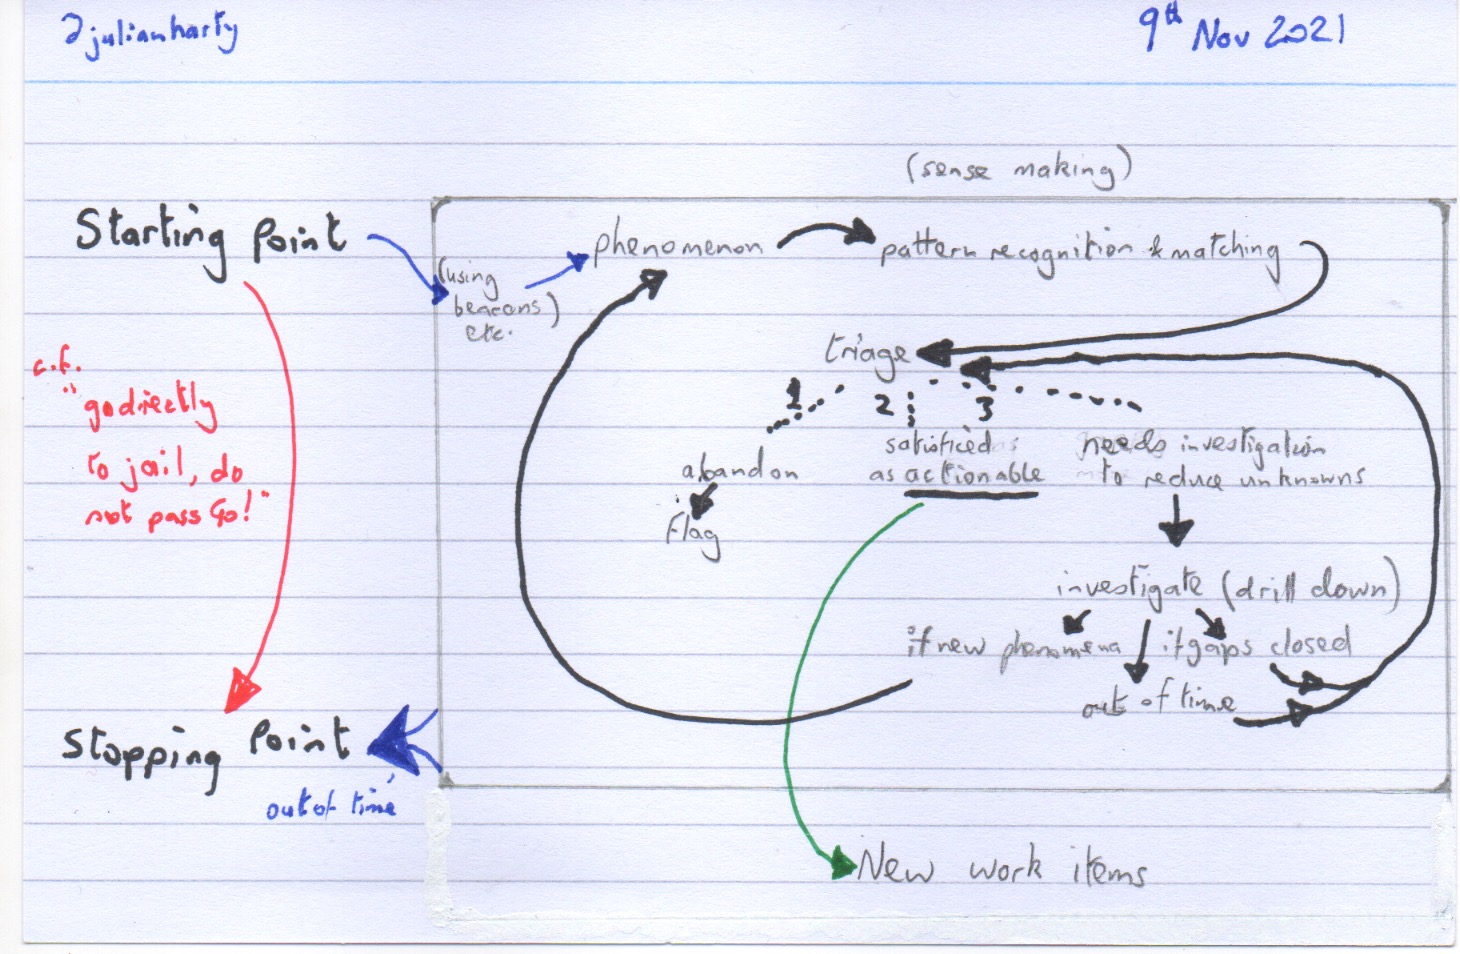 @julianharty
9th Nov 2021
(sense making)
Starting Point
(using
beacons)
etc.
phenomenon
pattern recognition & matching
triage
1
2
3
c.f.
"go directly
to jail, do
not pass Go!"
abandon
Flag
satisficed
as actionable
needs investigation
to reduce unknowns
investigate (drill down)
if new phenomena
if gaps closed
out of time
Stopping Point
out of time
New work items